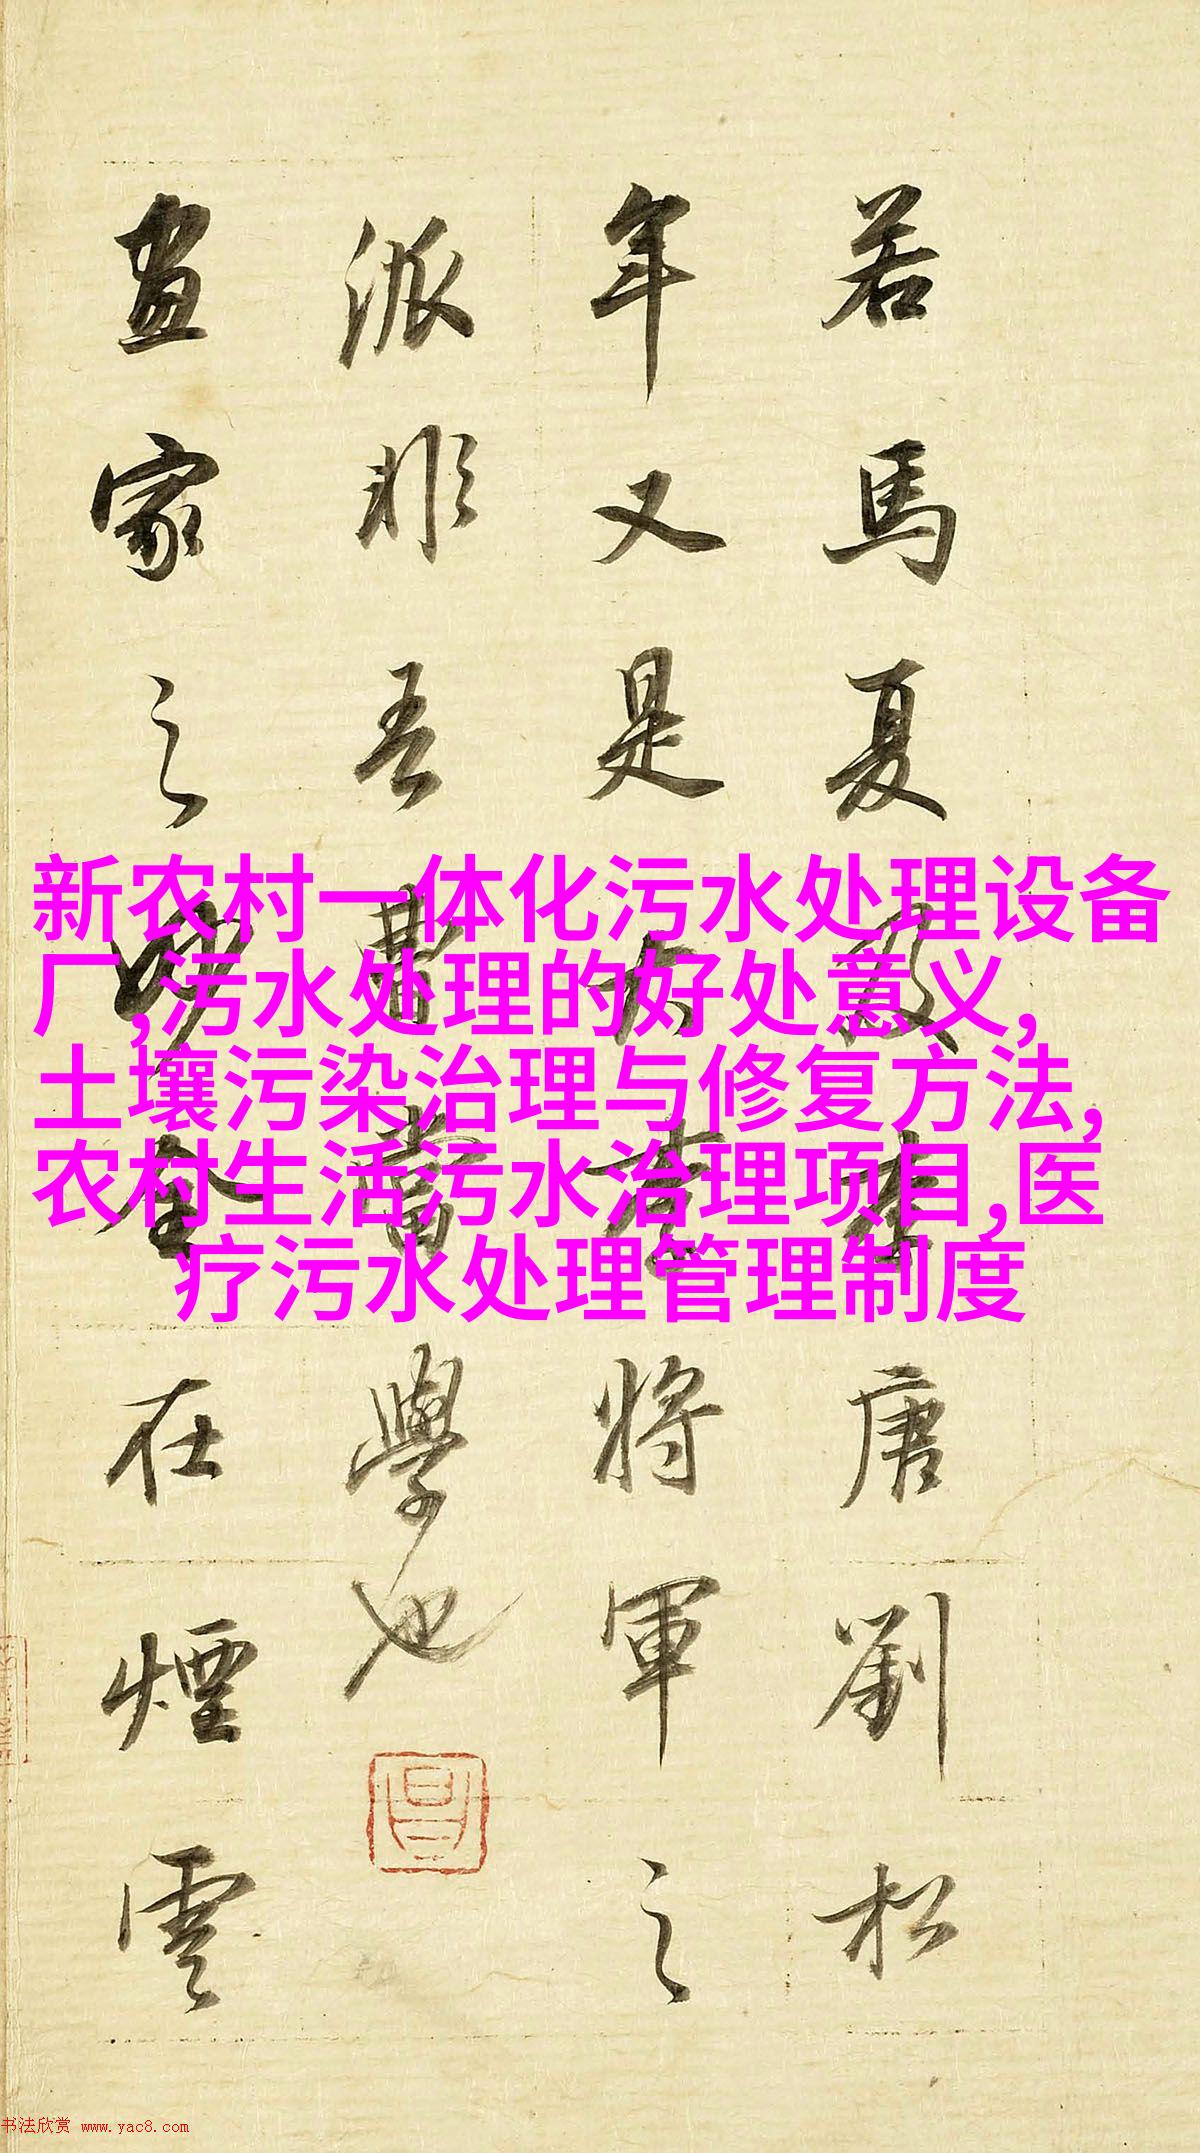 若馬夏及李唐劉松
年又是大李將軍之
派非吾曹當學也
畫家之妙全在煙雲
新农村一体化污水处理设备
厂,污水处理的好处意义,
土壤污染治理与修复方法,
农村生活污水治理项目,医
疗污水处理管理制度
书法欣赏 www.yac8.com